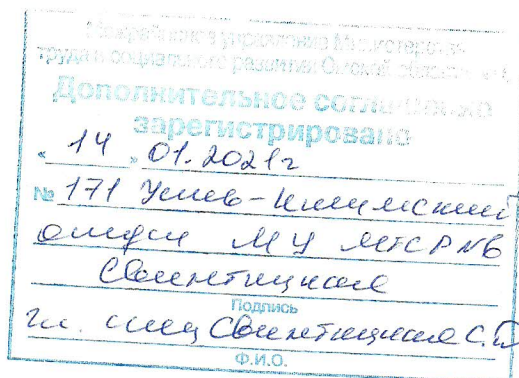 Межрайонное управление Министерства
труда и социального развития Омской области №
Дополнительное соглашение
зарегистрировано
« 14 » 01.2021г
№ 171 Усть-Ишимский
отдел МУ МТСР №6
Свентицкая
Подпись
Гл. спец Свентицкая С.
Ф.И.О.